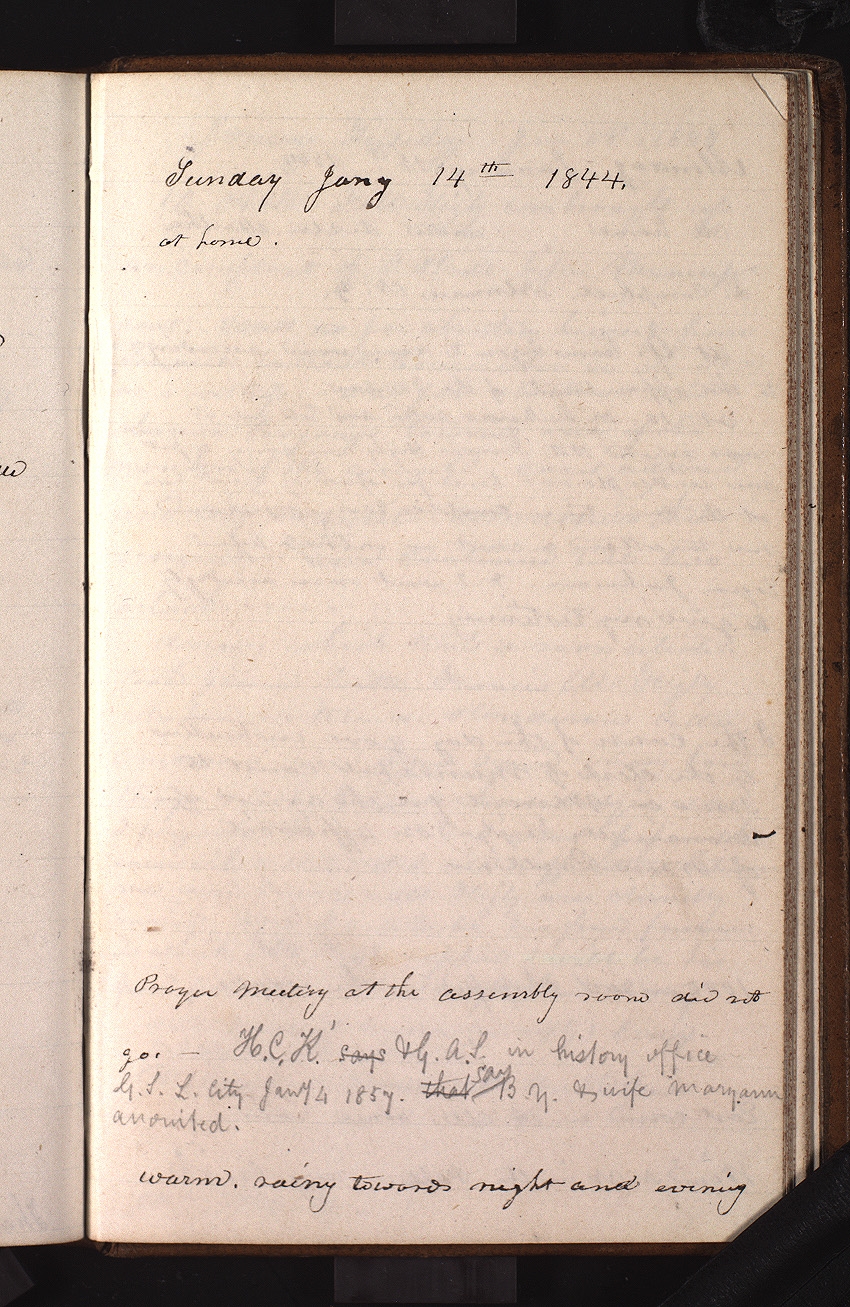 Sunday Jany 14th 1844.
at home.
Prayer Meeting at the assembly room did not
go. — H. C. K. says & G. A. S. in history office
G. S. L. City Jany 4 1857. that say B Y. & wife Maryann
anointed.
warm. rainy towards night and evening